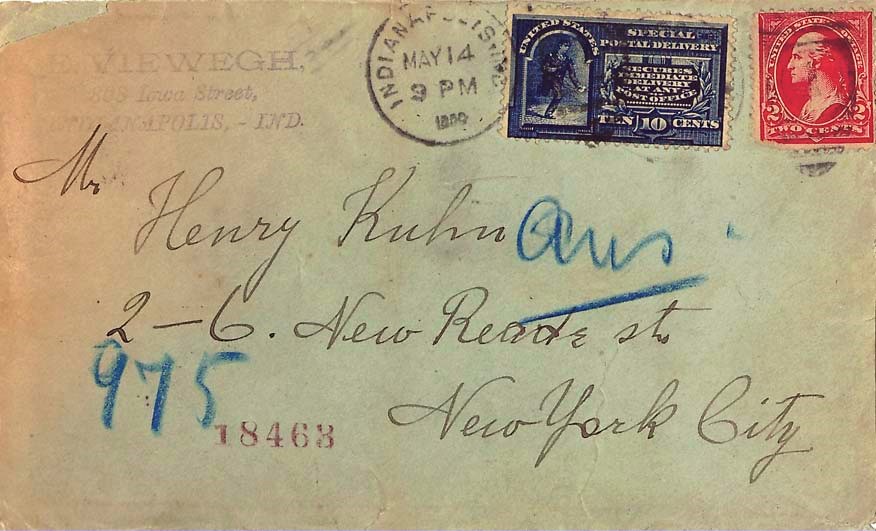 VIEWEGH,
Iowa Street,
INDIANAPOLIS, - IND.
INDIANAPOLIS, IND.
MAY 14
9 PM
UNITED STATES
SPECIAL
POSTAL DELIVERY
SECURES
IMMEDIATE
DELIVERY
AT ANY
POST OFFICE
TEN 10 CENTS
UNITED STATES POSTAGE
2 2
TWO CENTS
Mr
Henry Kuhn
Ans
2-6. New Reade st.
975
18463
New York City